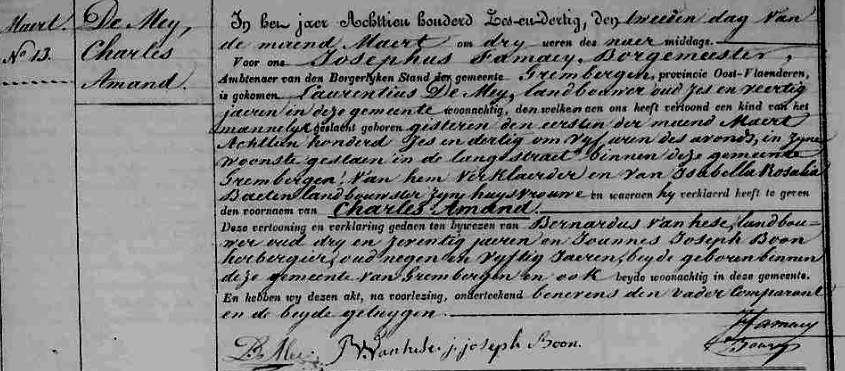 Maert.
N.o 13.
De Mey,
Charles
Amand.
In het jaer Achttien honderd Zes-en-dertig, den tweeden dag van
de maend Maert om dry ueren des naer middags.
Voor ons Josephus Famaey, Borgemeester,
Ambtenaer van den Borgerlyken Stand der gemeente Grembergen, provincie Oost-Vlaenderen,
is gekomen Laurentius De Mey, landbouwer oud zes en veertig
jaeren in deze gemeente woonachtig, den welken aen ons heeft vertoond een kind van het
mannelyk geslacht geboren gisteren den eersten der maend Maert
Achttien honderd zes en dertig om vyf uren des avonds, in zyne
woonste gestaen in de langstraet binnen deze gemeente
Grembergen, van hem verklaerder en van Isabella Rosalia
Baeten landbouwster zyne huysvrouwe en waeraen hy verklaerd heeft te geven
den voornaem van Charles Amand.
Deze vertooning en verklaring gedaen ten bywezen van Bernardus Vanhese, landbou-
wer oud dry en zeventig jaeren en Joannes Joseph Boon
herbergier, oud negen en vyftig Jaeren, beyde geboren binnen
deze gemeente van Grembergen en ook beyde woonachtig in deze gemeente.
En hebben wy dezen akt, na voorlezing, onderteekend benevens den vader Comparant
en de beyde getuygen.
D. Mey B Vanhese. j. joseph Boon.
J Famaey